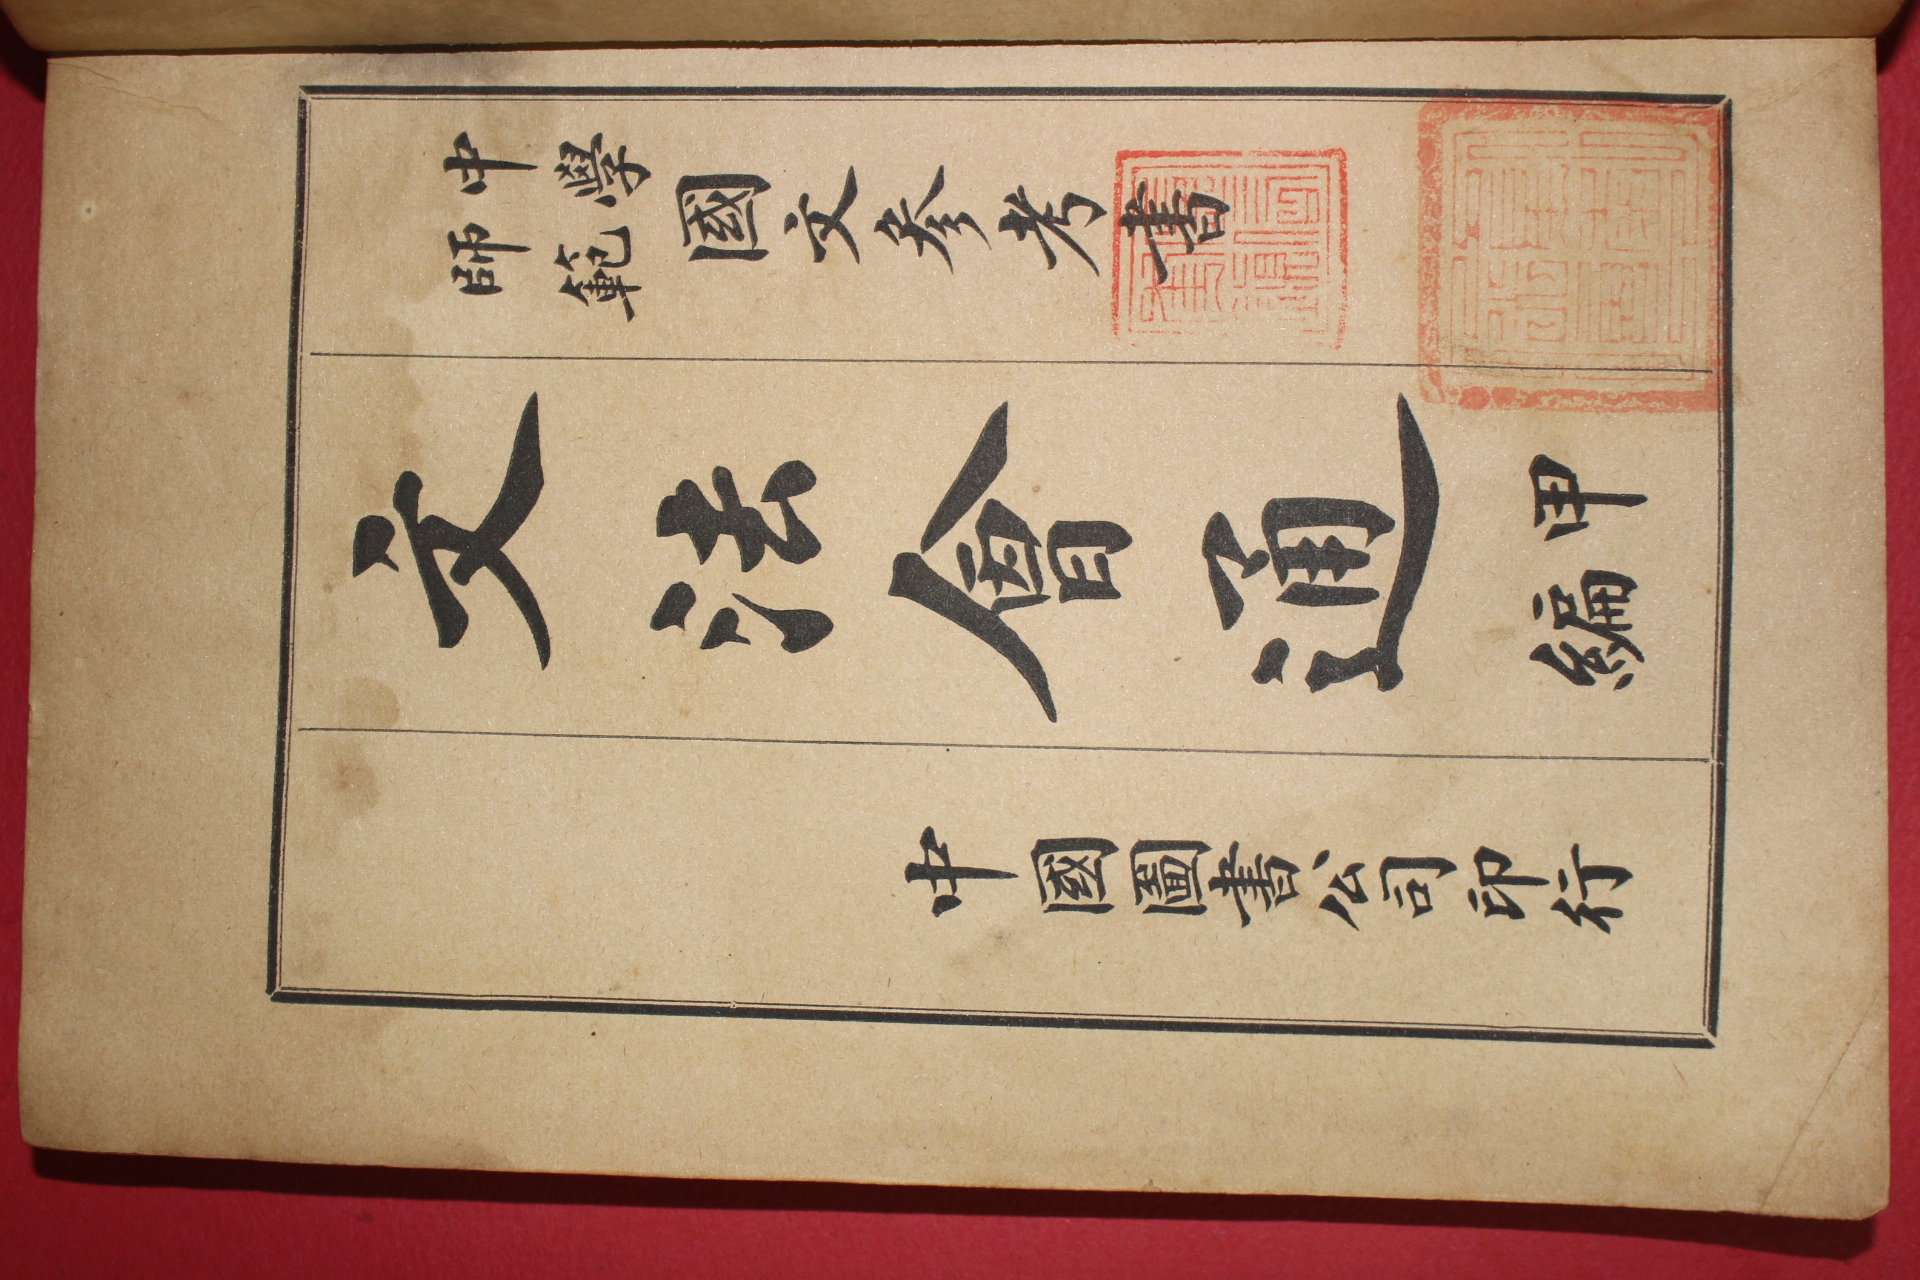 中學
師範
國文參考書
文法會通
甲編
中國圖書公司印行